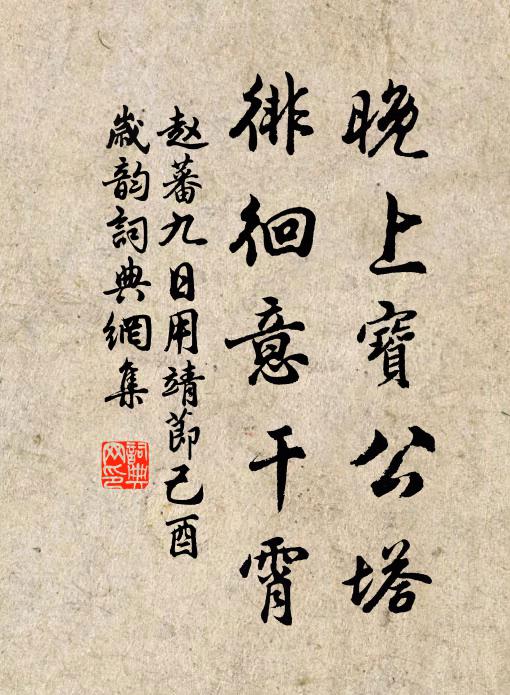 晚上寶公塔
徘徊意干霄
赵蕃九日用靖節己酉
歲韵詞典網集
詞典网印